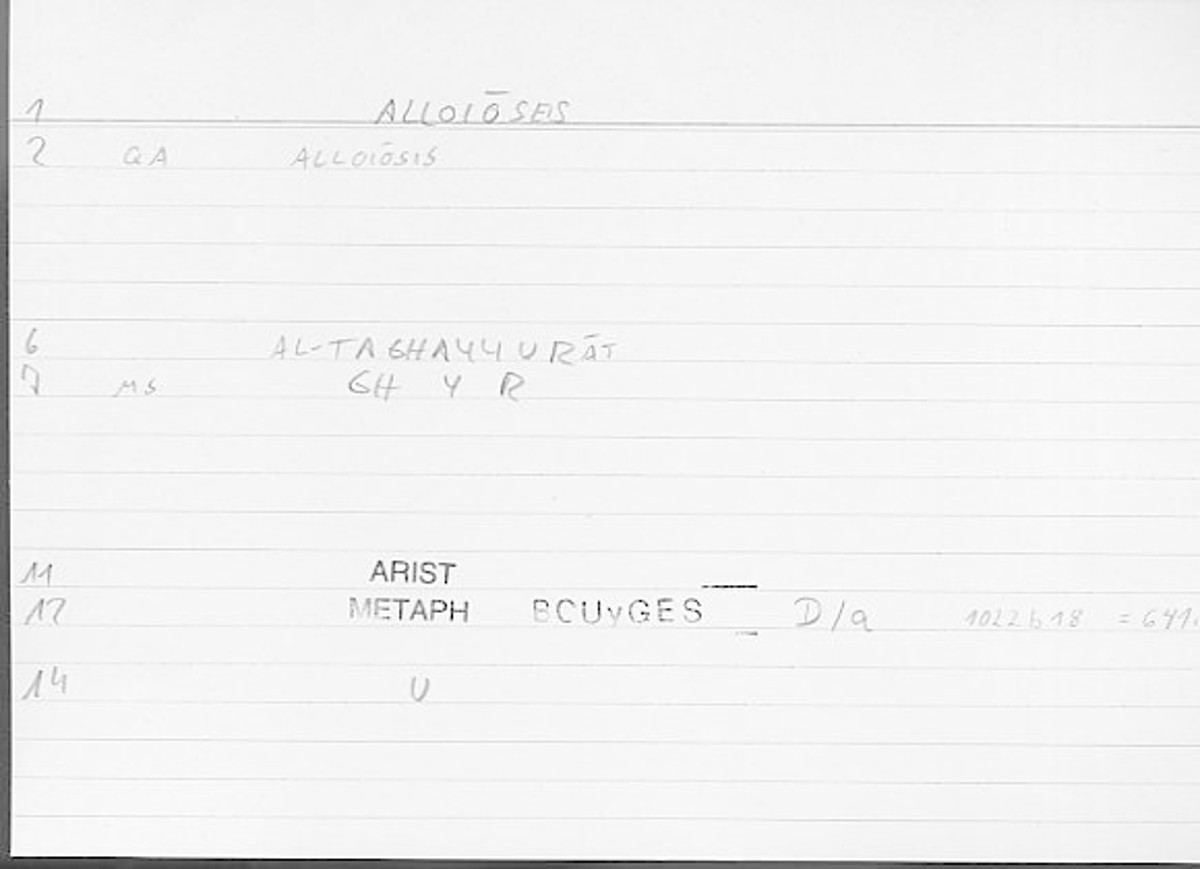 1 ALLOIŌSEIS
2 QA ALLOIŌSIS
6 AL-TAGHAYYURĀT
7 MS GH Y R
11 ARIST
12 METAPH BCUyGES D/a 1022b18 = 641.
14 U